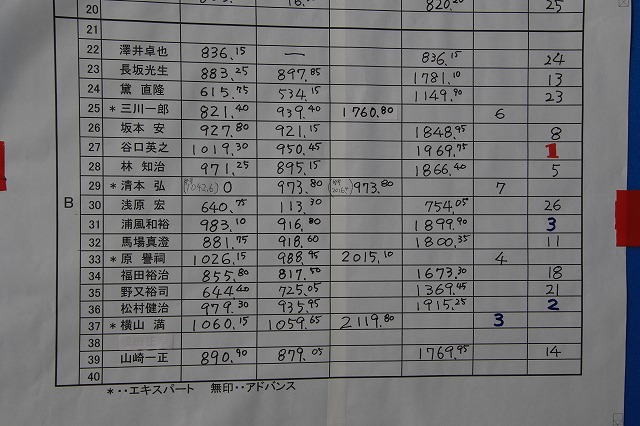 20 820.20 25
21
B
22 澤井卓也 836.15 — 836.15 24
23 長坂光生 883.25 897.85 1781.10 13
24 黛 直隆 615.75 534.15 1149.90 23
25 *三川一郎 821.40 939.40 1760.80 6
26 坂本 安 927.80 921.15 1848.95 8
27 谷口英之 1019.30 950.45 1969.75 1
28 林 知治 971.25 895.15 1866.40 5
29 *清本 弘 0 973.80 973.80 7
30 浅原 宏 640.75 113.30 754.05 26
31 浦風和裕 983.10 916.80 1899.90 3
32 馬場真澄 881.75 918.60 1800.35 11
33 *原 譽祠 1026.15 988.95 2015.10 4
34 福田裕治 855.80 817.50 1673.30 18
35 野又裕司 644.40 725.05 1369.45 21
36 松村健治 979.30 935.95 1915.25 2
37 *横山 満 1060.15 1059.65 2119.80 3
38
39 山崎一正 890.90 879.05 1769.95 14
40
*・・エキスパート 無印・・アドバンス